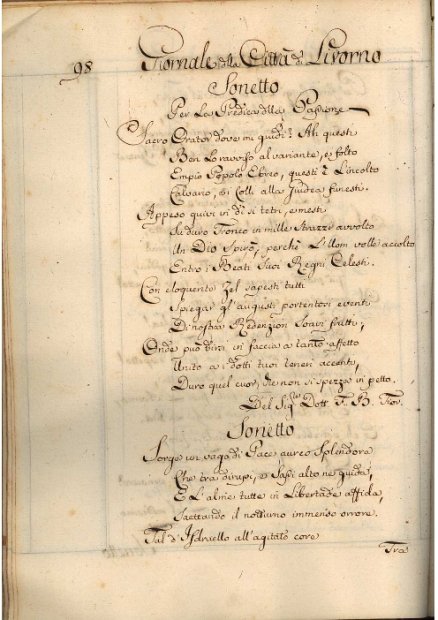 98
Giornale della Città di Livorno
Sonetto
Per La Predica della Passione
Sacro Orator dove mi guidi? Ah questi
Ben Lo ravviso al variante, e folto
Empio Popolo Ebreo, questi è L'incolto
Calvario, ai Colli alla Giudea funesti.
Appeso quivi in dì si tetri, e mesti
Su duro Tronco in mille Strazzi avvolto
Un Dio Spirò, perchè L'Uom volle accolto
Entro i Beati Suoi Regni Celesti.
Con eloquente Zel sapesti tutti
Spiegar gl'augusti portentosi eventi
Di nostra Redenzion Soavi frutti,
Onde può dirsi in faccia a tanto affetto
Unito a i dotti tuoi teneri accenti,
Duro quel cuor, che non si spezza in petto.
Del Sig.re Dott. F. B. Fior.
Sonetto
Sorge un vago di Pace aureo Splendore
Che tra dirupi, e Sassi alto ne guida,
E L'alme tutte in Libertade affida,
Saettando il notturno immenso orrore.
Tal d'Isdraello all'agitato core
Tra